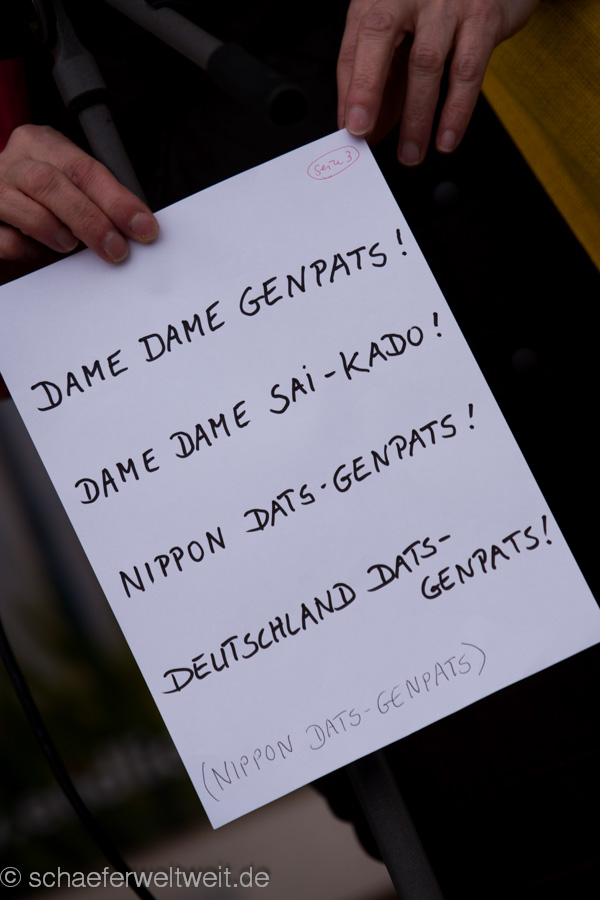 Seite 3
DAME DAME GENPATS!
DAME DAME SAi-KADO!
NIPPON DATS-GENPATS!
DEUTSCHLAND DATS-
GENPATS!
(NIPPON DATS-GENPATS)
© schaeferweltweit.de